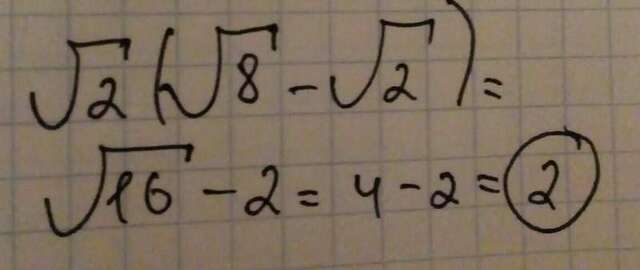 √2 (√8 - √2) =
√16 - 2 = 4 - 2 = 2